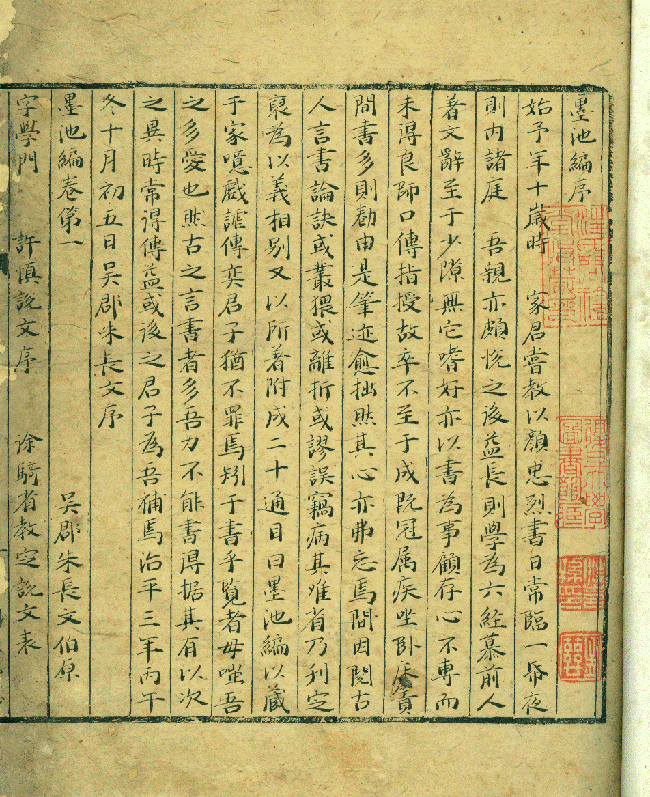 墨池編序
始予年十歲時 家君嘗教以顏忠烈書日常臨一帋夜
則內諸庭 吾親亦頗悅之後益長則學為六經慕前人
著文辭至于少隙無它嗜好亦以書為事顧存心不專而
未得良師口傳指授故卒不至于成既冠属疾坐卧
問書多則勸由是筆迹愈拙然其心亦弗忘焉間因閱古
人言書論訣或叢猥或離折或謬誤竊病其難省乃刊定
裒為以義相別又以所著附成二十通目曰墨池編以藏
于家噫戲謔傳奕君子猶不罪焉矧于書乎覽者毋嗤吾
之多愛也然古之言書者多吾力不能書得据其有以次
之異時常得傳益或後之君子為吾補焉治平三年丙午
冬十月初五日吳郡朱長文序
墨池編卷第一 吳郡朱長文伯原
字學門 許慎說文序 徐騎省教定說文表